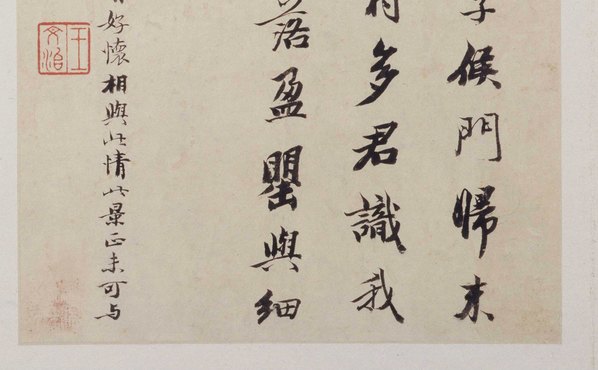 子候門歸未
多君識我
落盈罌與細
好懷相與此情此景正未可与
王文治